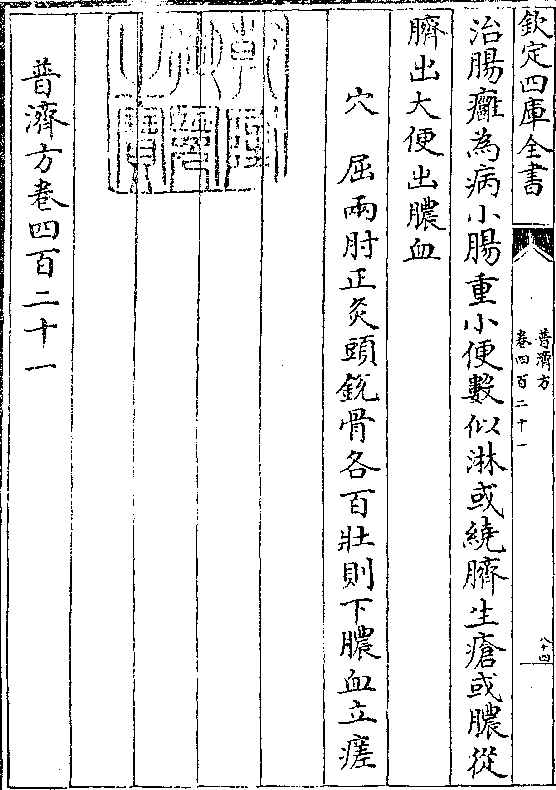 欽定四庫全書
普濟方
卷四百二十一
八十四
治腸癰為病小腸重小便數似淋或繞臍生瘡或膿從
臍出大便出膿血
穴 屈兩肘正灸頭銳骨各百壯則下膿血立瘥
普濟方卷四百二十一